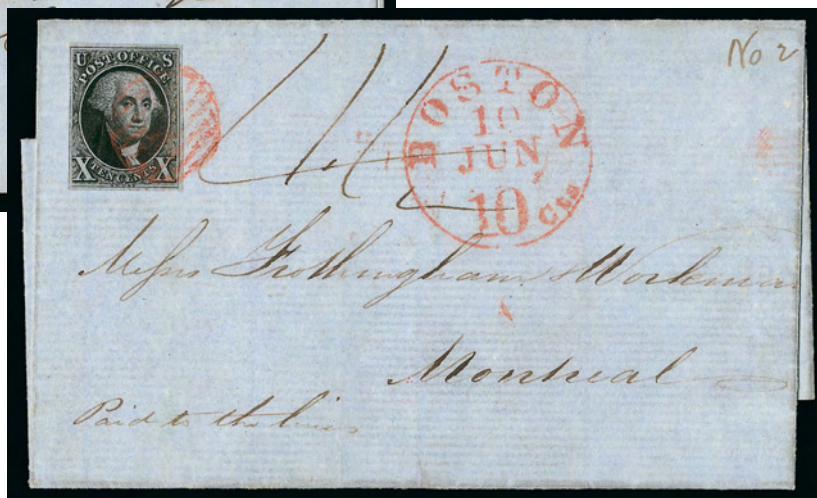 No 2
U S
POST OFFICE
X TEN CENTS X
BOSTON
10
JUN
10 Cts
Messrs Frothingham & Workman
Montreal
Paid to the lines